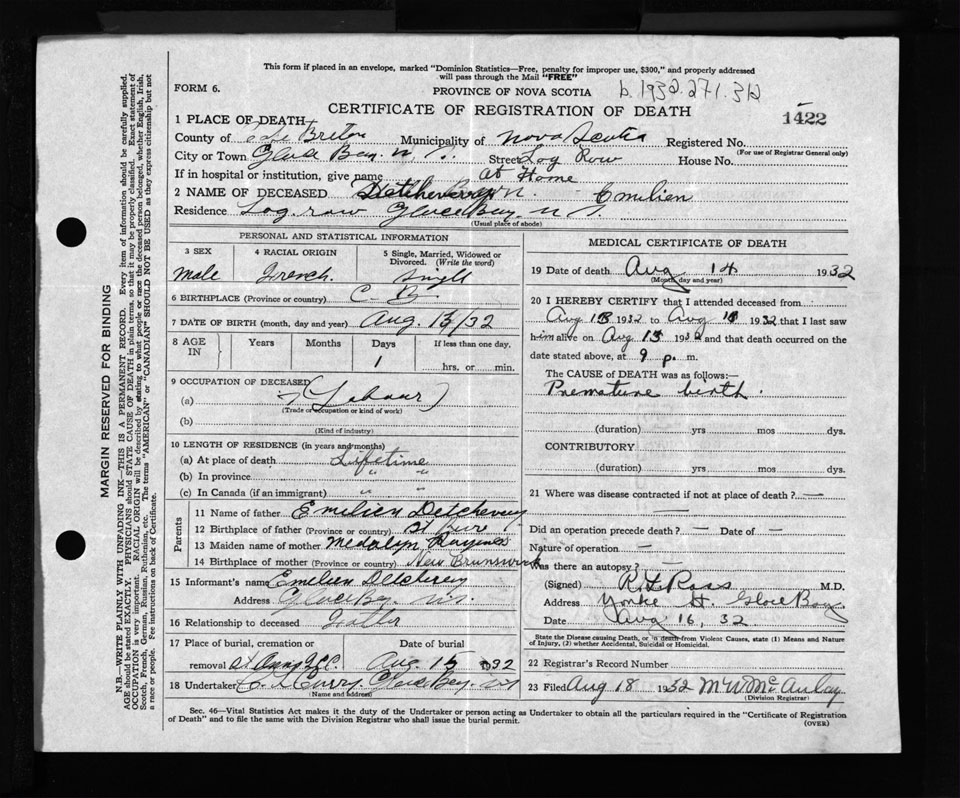 This form if placed in an envelope, marked "Dominion Statistics—Free, penalty for improper use, $300," and properly addressed
will pass through the Mail "FREE"
FORM 6.
PROVINCE OF NOVA SCOTIA
b. 1932.271.312
CERTIFICATE OF REGISTRATION OF DEATH
1422
1 PLACE OF DEATH
County of Cape Breton Municipality of Nova Scotia Registered No.
(For use of Registrar General only)
City or Town Glace Bay. N. S. Street Log Row House No.
If in hospital or institution, give name at Home
2 NAME OF DECEASED Detcheverry Emilien
Residence Log. row Glace Bay. N. S.
(Usual place of abode)
PERSONAL AND STATISTICAL INFORMATION
3 SEX
4 RACIAL ORIGIN
5 Single, Married, Widowed or Divorced. (Write the word)
Male French. Single
6 BIRTHPLACE (Province or country) C. B.
7 DATE OF BIRTH (month, day and year) Aug. 13/32
8 AGE IN
Years Months Days If less than one day.
1 hrs. or min.
9 OCCUPATION OF DECEASED
(a) (Labour)
(Trade or occupation or kind of work)
(b)
(Kind of industry)
10 LENGTH OF RESIDENCE (in years and months)
(a) At place of death Lifetime
(b) In province " "
(c) In Canada (if an immigrant) " "
Parents
11 Name of father Emilien Detcheverry
12 Birthplace of father (Province or country) St
13 Maiden name of mother Medalyn
14 Birthplace of mother (Province or country) New Brunswick
15 Informant's name Emilien Detcheverry
Address Glace Bay. N.S.
16 Relationship to deceased Father
17 Place of burial, cremation or Date of burial
removal St Anns G.C. Aug. 15 1932
18 Undertaker Curry. Glace Bay. N.S.
(Name and address)
MEDICAL CERTIFICATE OF DEATH
19 Date of death Aug 14 1932
(Month, day and year)
20 I HEREBY CERTIFY that I attended deceased from
Aug 13 1932 to Aug 1932 that I last saw
him alive on Aug 13 1932 and that death occurred on the
date stated above, at 9 p. m.
The CAUSE of DEATH was as follows:—
Premature birth.
(duration) yrs mos dys.
CONTRIBUTORY
(duration) yrs mos dys.
21 Where was disease contracted if not at place of death? —
—
Did an operation precede death? — Date of —
Nature of operation —
Was there an autopsy? —
(Signed) R L Ross M.D.
Address Yorke St Glace Bay
Date Aug 16, 32
State the Disease causing Death, or in death from Violent Causes, state (1) Means and Nature
of Injury, (2) whether Accidental, Suicidal or Homicidal.
22 Registrar's Record Number
23 Filed Aug 18 1932 M W McAulay
(Division Registrar)
Sec. 46—Vital Statistics Act makes it the duty of the Undertaker or person acting as Undertaker to obtain all the particulars required in the "Certificate of Registration
of Death" and to file the same with the Division Registrar who shall issue the burial permit.
(OVER)
MARGIN RESERVED FOR BINDING
N.B.—WRITE PLAINLY WITH UNFADING INK—THIS IS A PERMANENT RECORD. Every item of information should be carefully supplied.
AGE should be stated EXACTLY. PHYSICIANS should STATE CAUSE OF DEATH in plain terms, so that it may be properly classified. Exact statement of
OCCUPATION is very important. RACIAL ORIGIN will be described by stating to what people or race the deceased person belonged, whether English, Irish,
Scotch, French, German, Russian, Ruthenian, etc. The terms "AMERICAN" or "CANADIAN" SHOULD NOT BE USED as they express citizenship but not
a race or people. Fee instructions on back of Certificate.